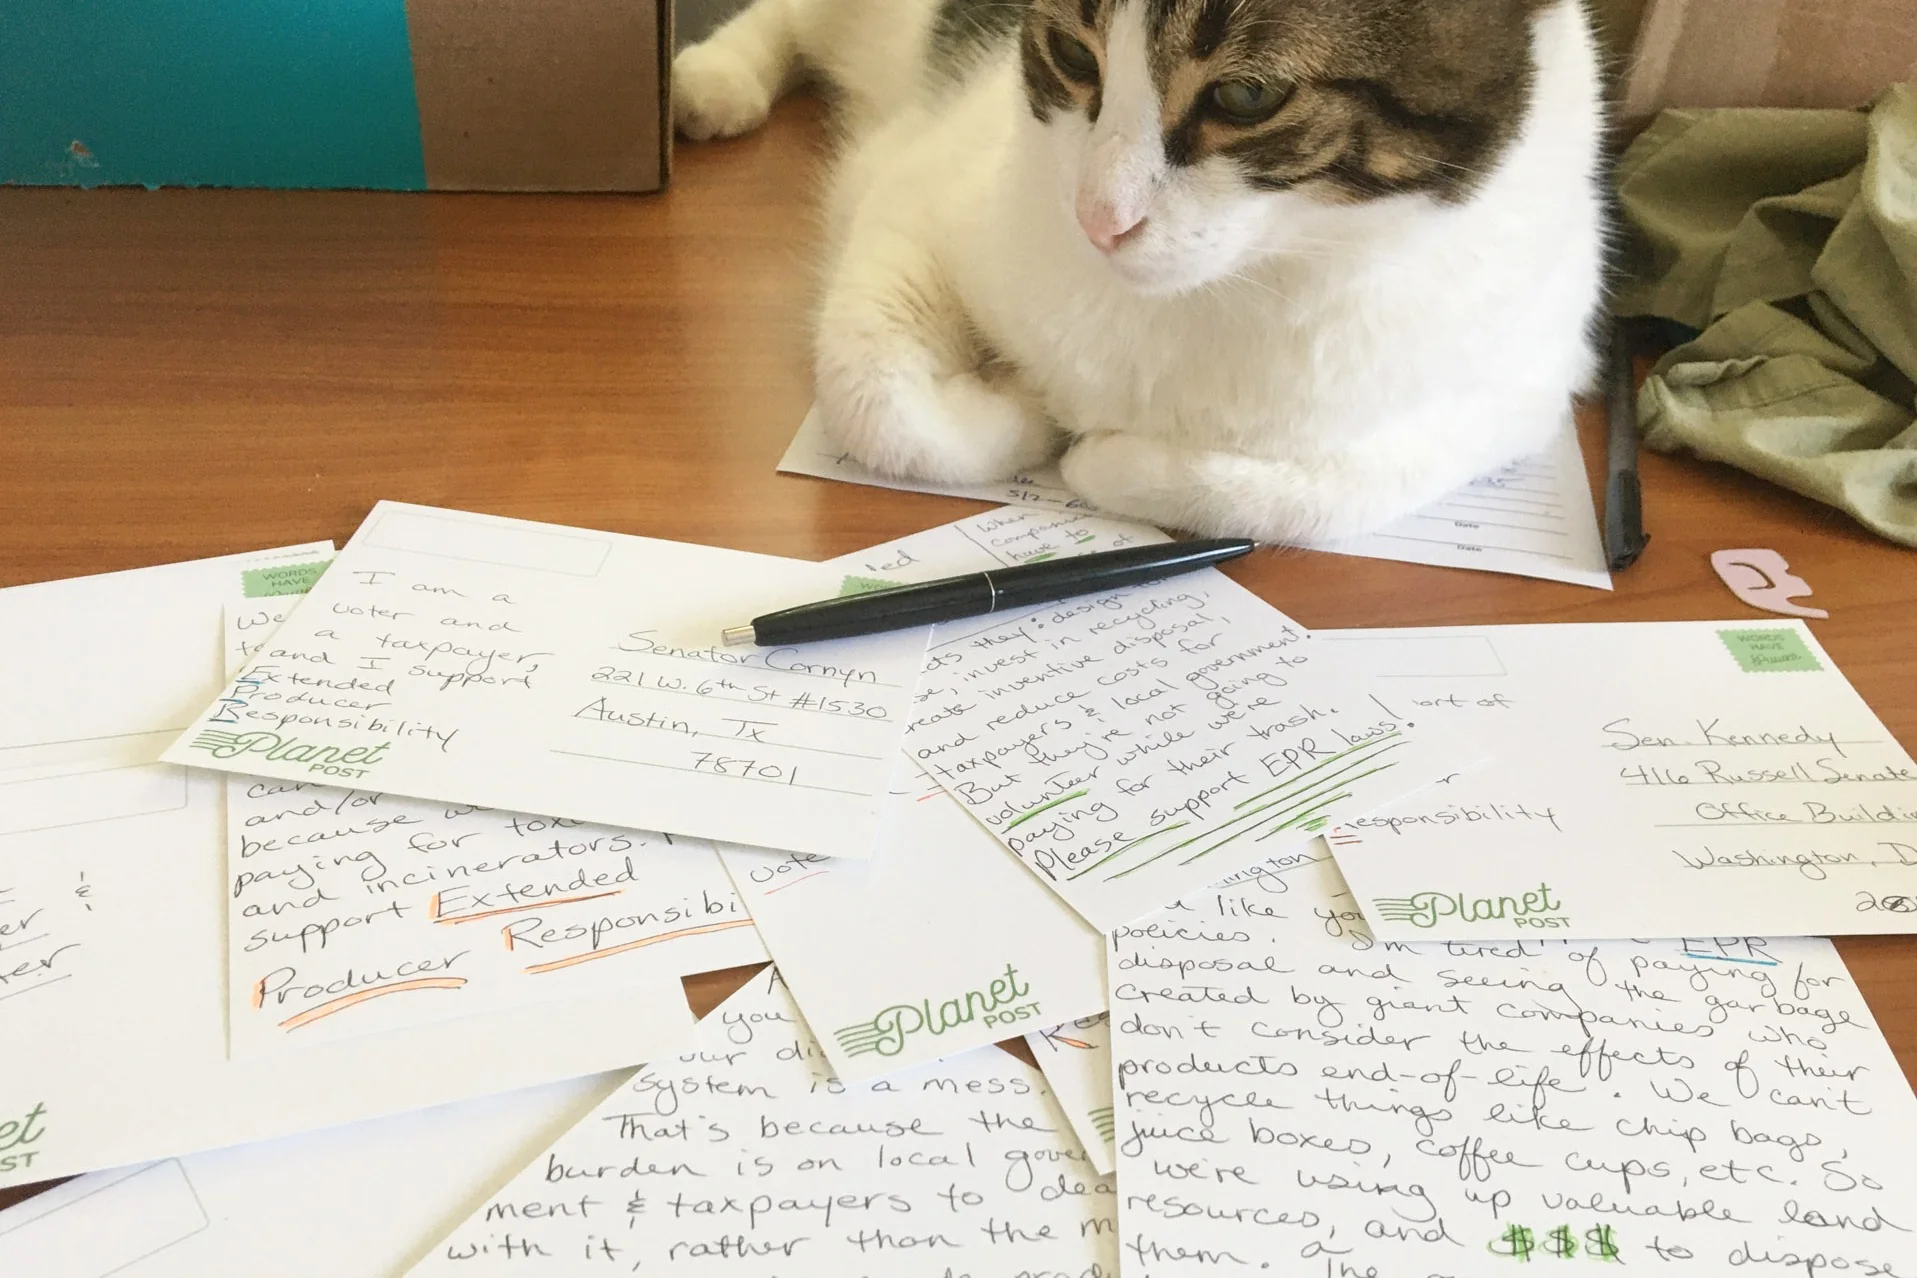 WORDS
HAVE
Power
I am a
voter and
a taxpayer,
and I support
Extended
Producer
Responsibility
Planet
POST
Senator Cornyn
221 W. 6th St #1530
Austin, Tx
78701
We
can
and/or
because
paying for
and incinerators.
support Extended
Producer Responsibi
When
companies
have to
of
they: design
invest in recycling,
create inventive disposal,
and reduce costs for
taxpayers & local government.
But they're not going to
volunteer while we're
paying for their trash.
Please support EPR laws!
WORDS
HAVE
Power
ort of
responsibility
Planet
POST
Sen. Kennedy
416 Russell Senate
Office Buildi
Washington, D
vote
Planet
POST
you
our di
system is a mess.
That's because the
burden is on local gover
ment & taxpayers to dea
with it, rather than the m
like you
policies. EPR
I'm tired of paying for
disposal and seeing the garbage
created by giant companies who
don't consider the effects of their
products end-of-life. We can't
recycle things like chip bags,
juice boxes, coffee cups, etc. So
we're using up valuable land
resources, and $$$ to dispose
them. The
er &
er
et
ST
Date
Date